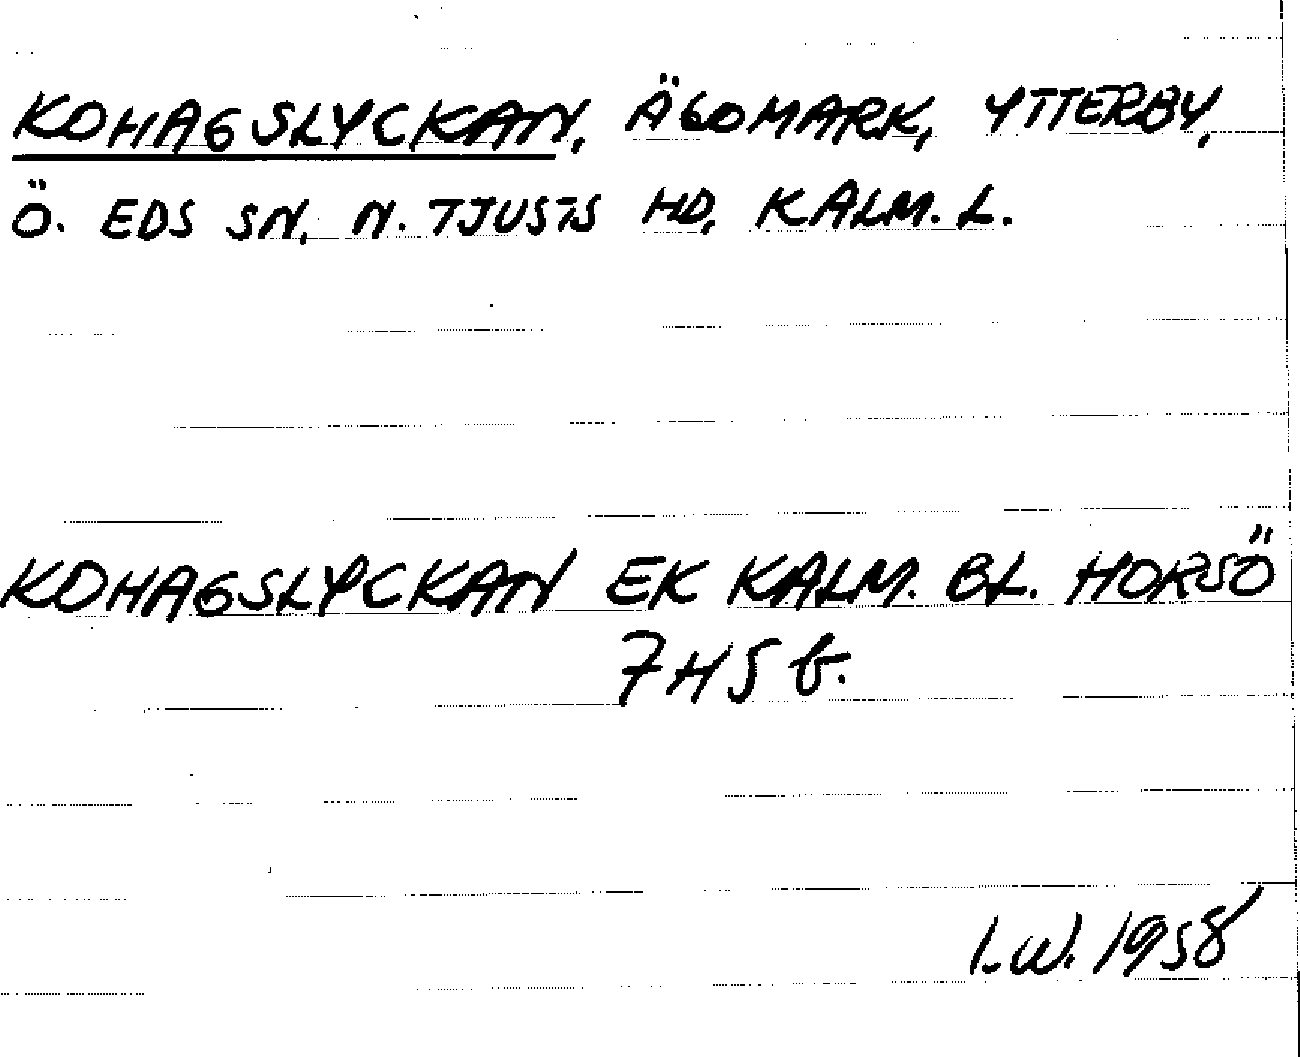 KOHAGSLYCKAN, ÄGOMARK, YTTERBY,
Ö. EDS SN, N. TJUSTS HD, KALM. L.
KOHAGSLYCKAN EK KALM. BL. HORSÖ
7H5b.
I.W. 1958